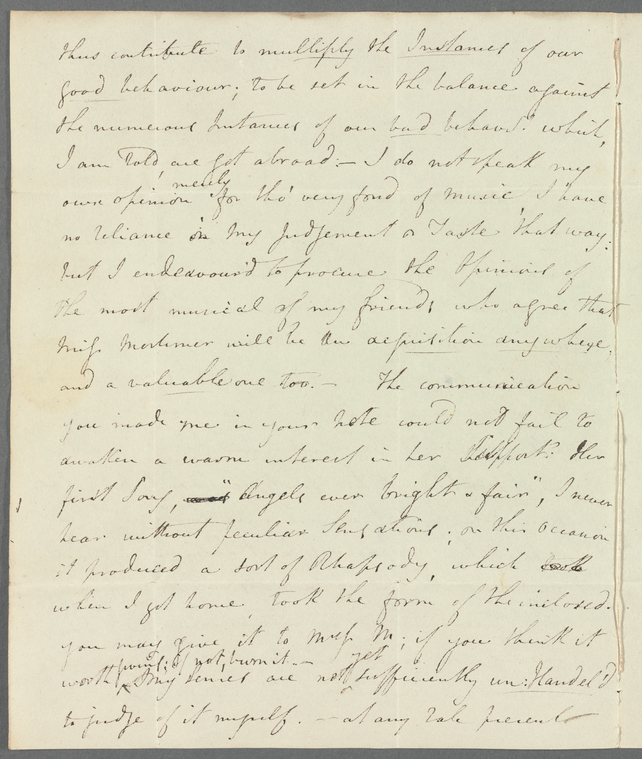 thus contribute to multiply the Instances of our
good behaviour; to be set in the balance against
the numerous Instances of our bad behavr. which,
I am Told, are got abroad:— I do not speak my
merely
own opinion for tho' very fond of music, I have
no reliance in my Judgement or Taste that way:
but I endeavour'd to procure the Opinions of
the most musical of my friends who agree that
Miss Mortimer will be an acquisition anywhere,
and a valuable one too.— The communication
you made me in your note could not fail to
awaken a warm interest in her Support: Her
first Song, "Angels ever bright & fair", I never
hear without peculiar Sensations; on this Occasion
it produced a sort of Rhapsody, which
when I got home, took the form of the inclosed.
you may give it to Miss M; if you think it
giving; if not, burn it.— yet
worth my senses are not sufficiently un:Handel'd
to judge of it myself.— at any rate present